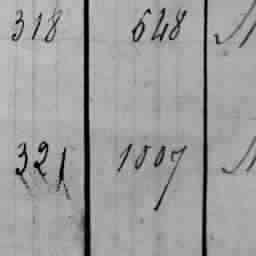 318 648
321 1007